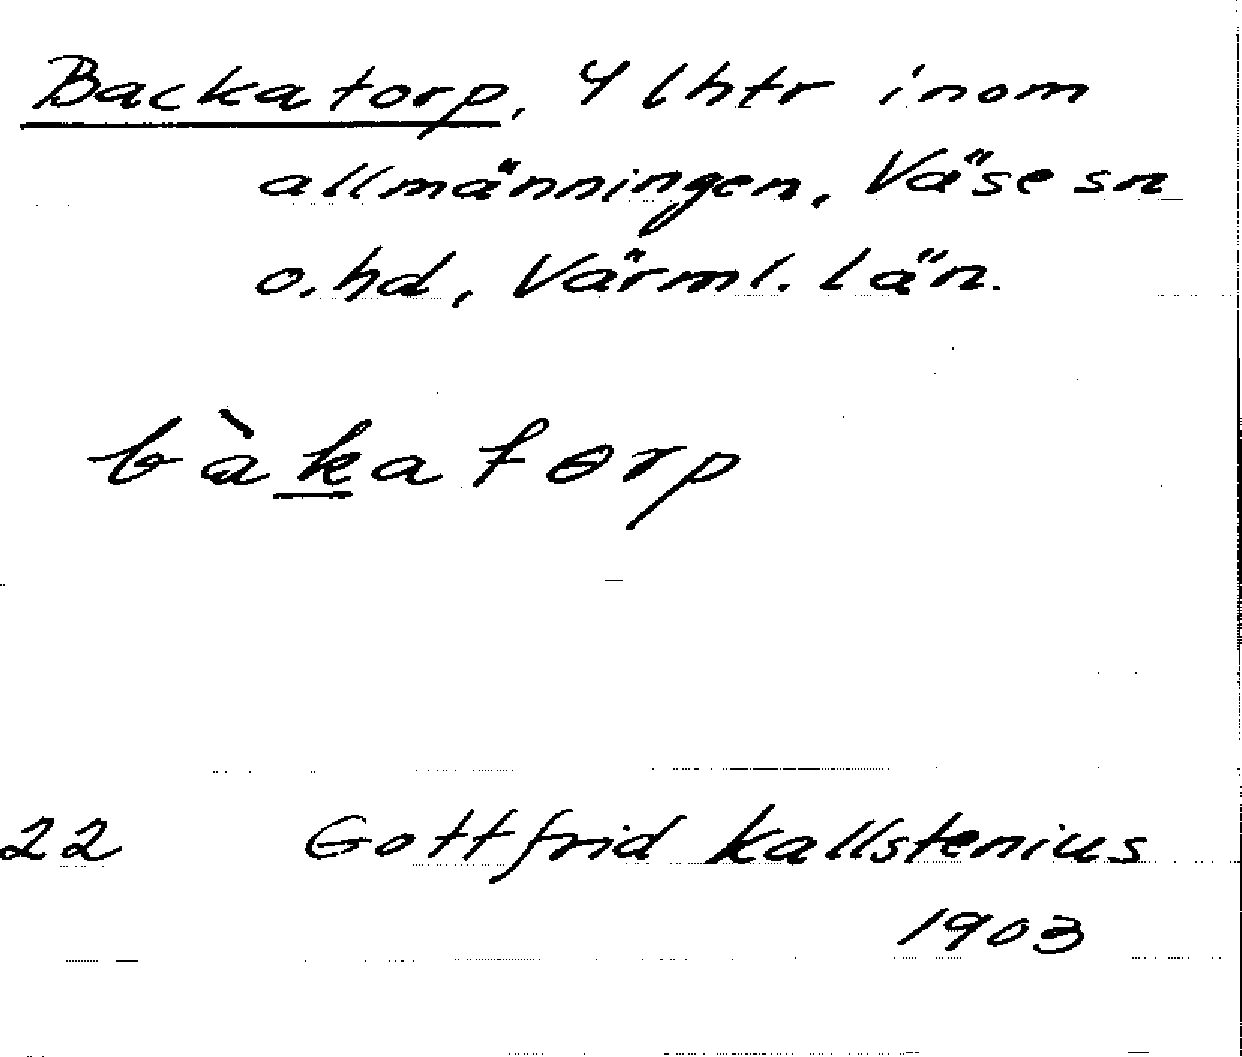 Backatorp, 4 lhtr inom
allmänningen, Väse sn
o. hd, Värml. län.
bàkatɵrp
22 Gottfrid Kallstenius
1903